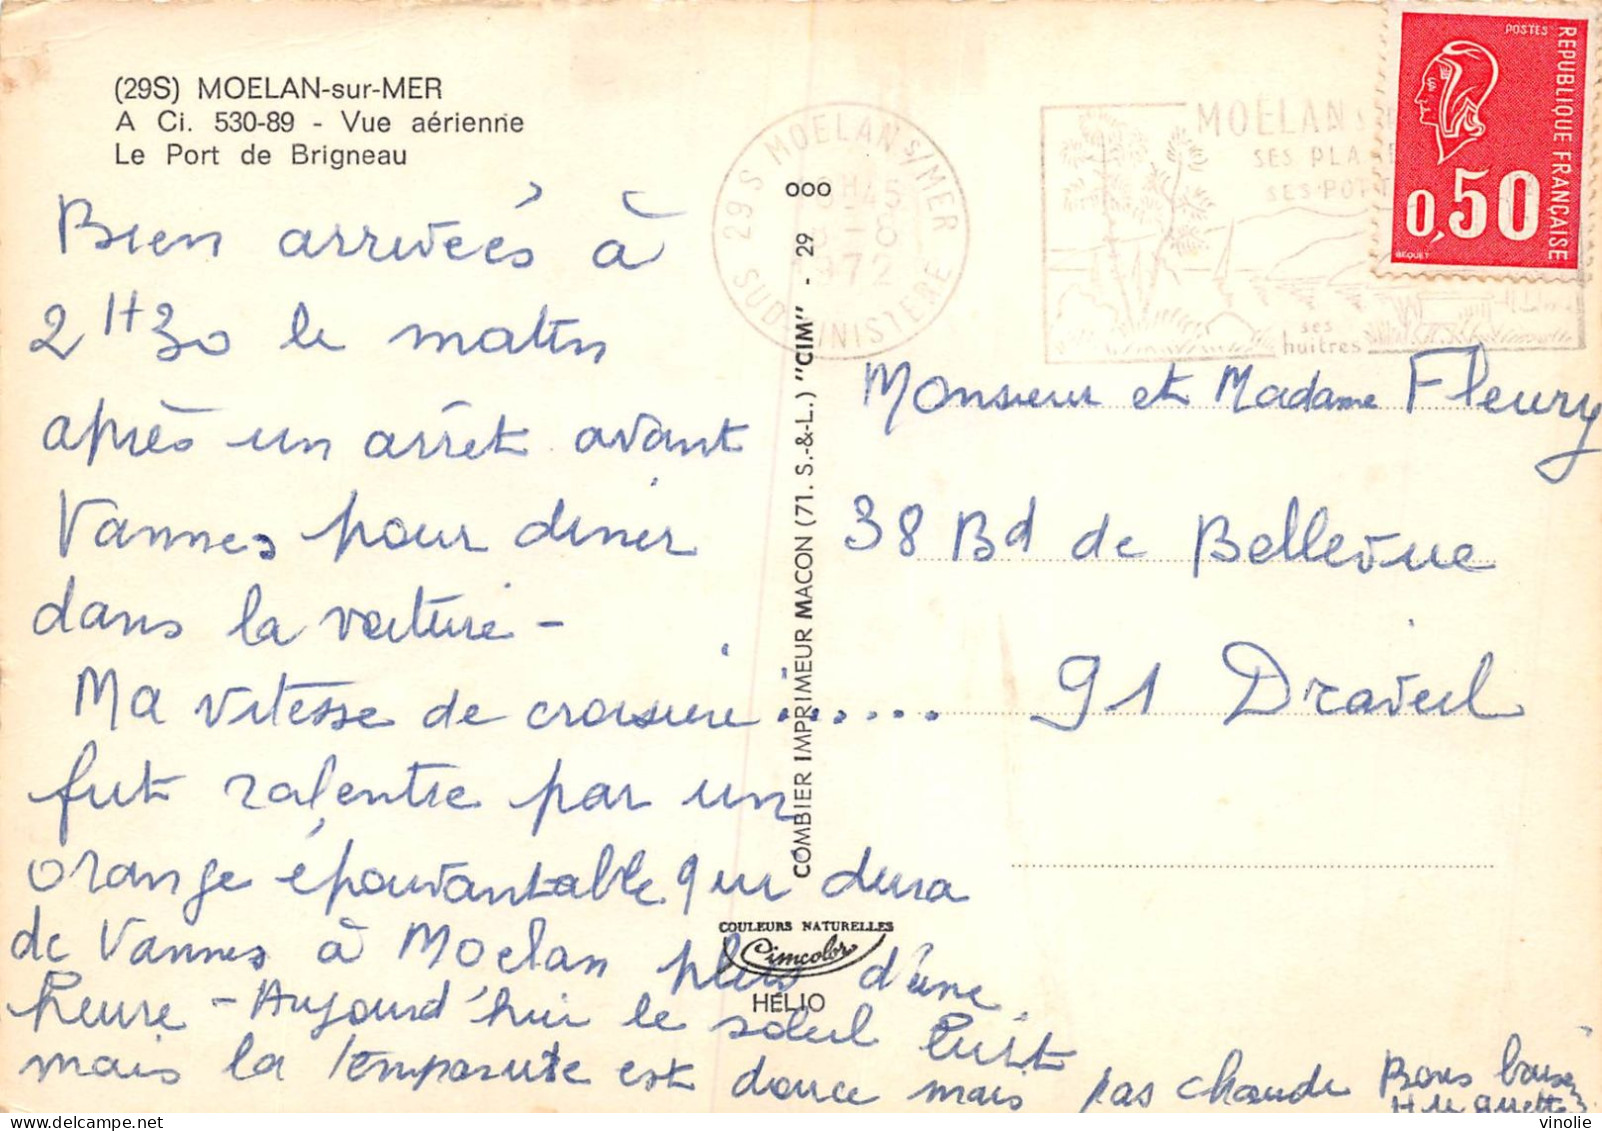 (29S) MOELAN-sur-MER
A Ci. 530-89 - Vue aérienne
Le Port de Brigneau
Bien arrivées à
2H30 le matin
après un arrêt avant
Vannes pour diner
dans la voiture -
Ma vitesse de croisière ......
fut ralentie par un
orange épouvantable qui dura
de Vannes à Moelan plus d'une
heure - Aujourd'hui le soleil luit
mais la température est douce mais pas chaude Bons baisers
Huguette
29 S MOELAN S/MER
H45
-8
1972
SUD-FINISTERE
OOO
COMBIER IMPRIMEUR MACON (71. S.-&-L.) "CIM" - 29
COULEURS NATURELLES
Cimcolor
HÉLIO
MOELAN S
SES PLA
SES PO
ses
huitres
POSTES
REPUBLIQUE FRANÇAISE
0,50
BEQUET
Monsieur et Madame Fleury
38 Bd de Bellevue
91 Draveil
vinolie